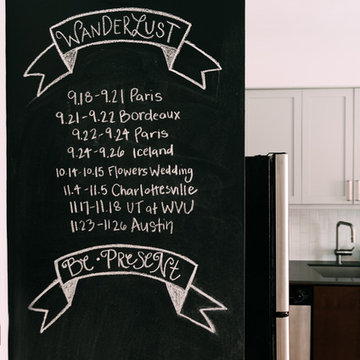 WANDERLUST
9.18-9.21 Paris
9.21-9.22 Bordeaux
9.22-9.24 Paris
9.24-9.26 Iceland
10.14-10.15 Flowers Wedding
11.4-11.5 Charlottesville
11.17-11.18 UT at WVU
11.23-11.26 Austin
BE•PRESENT